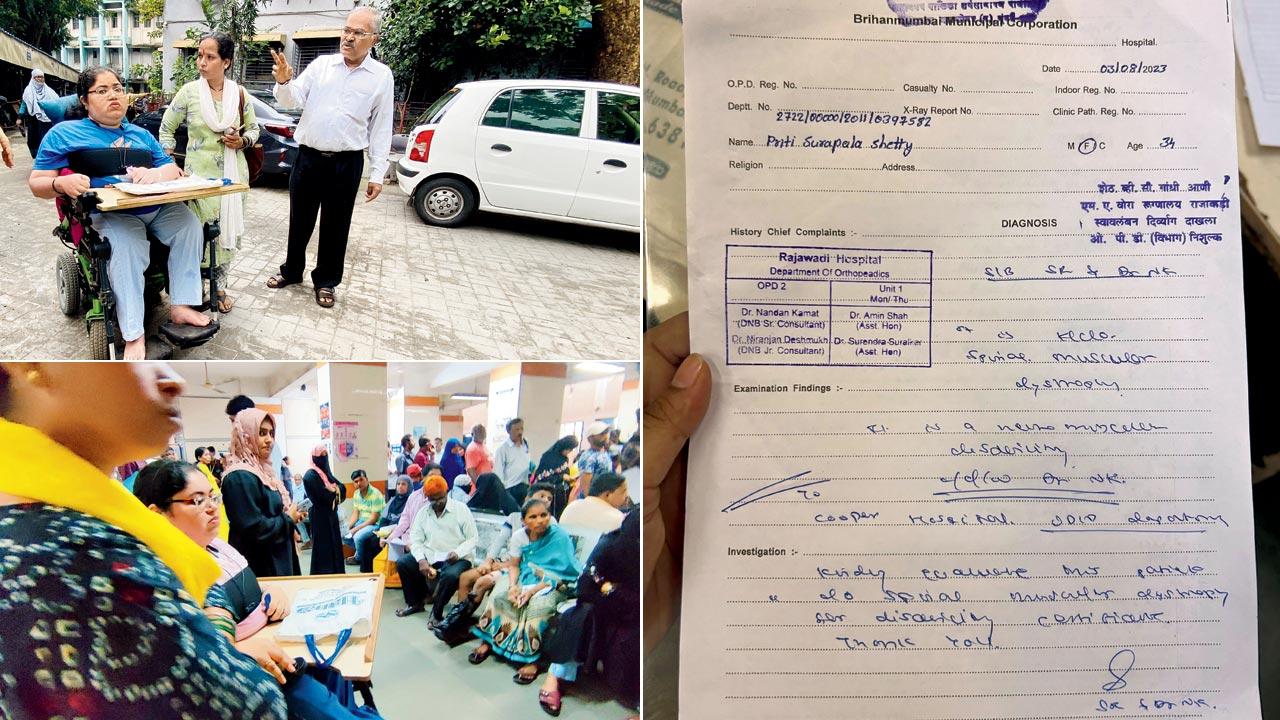 Brihanmumbai Municipal Corporation
Hospital.
Date 03/08/2023
O.P.D. Reg. No. Casualty No. Indoor Reg. No.
Deptt. No. X-Ray Report No. Clinic Path. Reg. No.
2722/00000/2011/0397582
Name Priti Surapala Shetty M F C Age 34
Religion Address
शेठ. व्ही. सी. गांधी आणी
एम. ए. वोरा रूग्णालय राजावाडी
स्वावलंबन दिव्यांग दाखला
ओ. पी. डी. (विभाग) निशुल्क
DIAGNOSIS
History Chief Complaints :-
Rajawadi Hospital
Department Of Orthopeadics
OPD 2 Unit 1
Mon/ Thu
Dr. Nandan Kamat Dr. Amin Shah
(DNB Sr. Consultant) (Asst. Hon)
Dr. Niranjan Deshmukh Dr. Surendra
(DNB Jr. Consultant) (Asst. Hon)
S/B SR Dr NK
Spinal muscular
dystrophy
Examination Findings :-
neuro muscular
disability
Dr NK.
To
Cooper Hospital.
Investigation :-
Kindly evaluate this patient
Spinal muscular dystrophy
for disability certificate.
Thank You.
Dr NK.